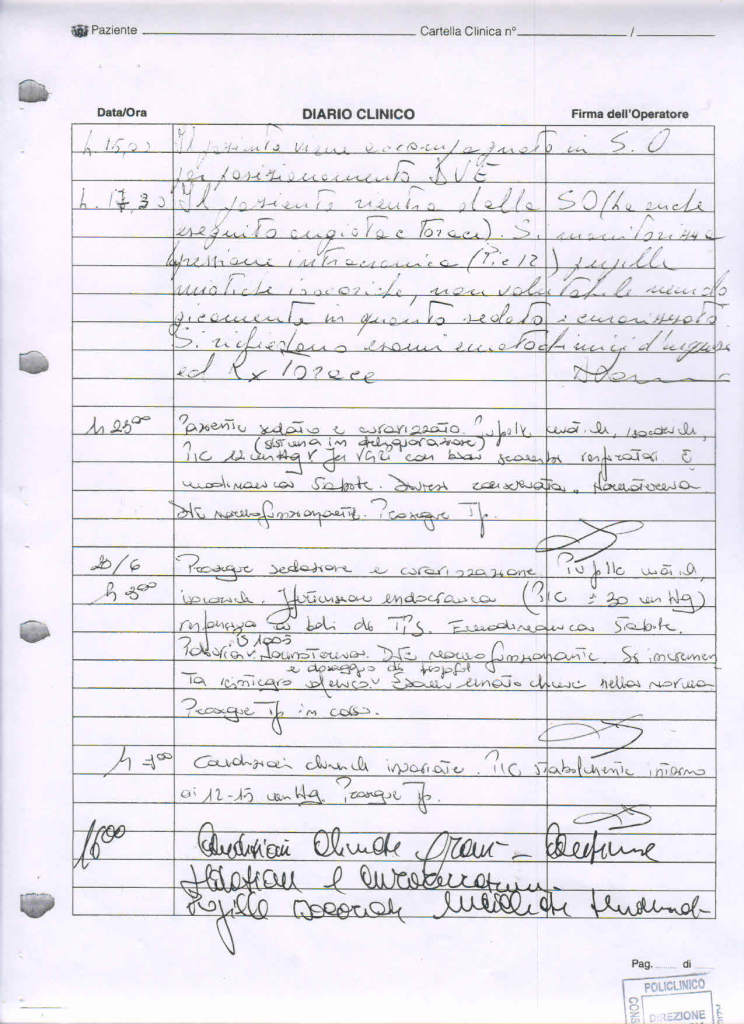 Paziente Cartella Clinica n° /
Data/Ora DIARIO CLINICO Firma dell'Operatore
h. 15,00 Il paziente viene accompagnato in S.O
per posizionamento DVE
h. 17,30 Il paziente rientra dalla SO (ha anche
eseguito angiotac torace). Si monitorizza
pressione intracranica (Pic 12) pupille
miotiche isocoriche, non valutabile neurolo
gicamente in quanto sedato e curarizzato
Si richiedono esami ematochimici d'urgenza
ed Rx Torace
h 23⁰⁰ Paziente sedato e curarizzato. Pupille miotiche, isocoriche,
(sistema in
PIC 12 mmHg. In VCV con buoni scambi respiratori. E
modinamica stabile. Diuresi conservata.
DVE normofunzionante. Prosegue Tp.
20/6 Prosegue sedazione e curarizzazione. Pupille miotiche,
h 3⁰⁰ isocoriche. Ipertensione endocranica (PIC = 30 mmHg)
responsiva a boli di TPS. Emodinamica stabile.
DVE normofunzionante. Si incremen
e dosaggio di propofol
ta reintegro volemico. Esami ematochimici nella norma
Prosegue Tp in corso.
h 7⁰⁰ Condizioni cliniche invariate. PIC stabilmente intorno
ai 12-15 mmHg. Prosegue Tp.
16⁰⁰ Condizioni cliniche gravi - Continua
sedazione e curarizzazione.
Pupille isocoriche miotiche
Pag. di
POLICLINICO
DIREZIONE